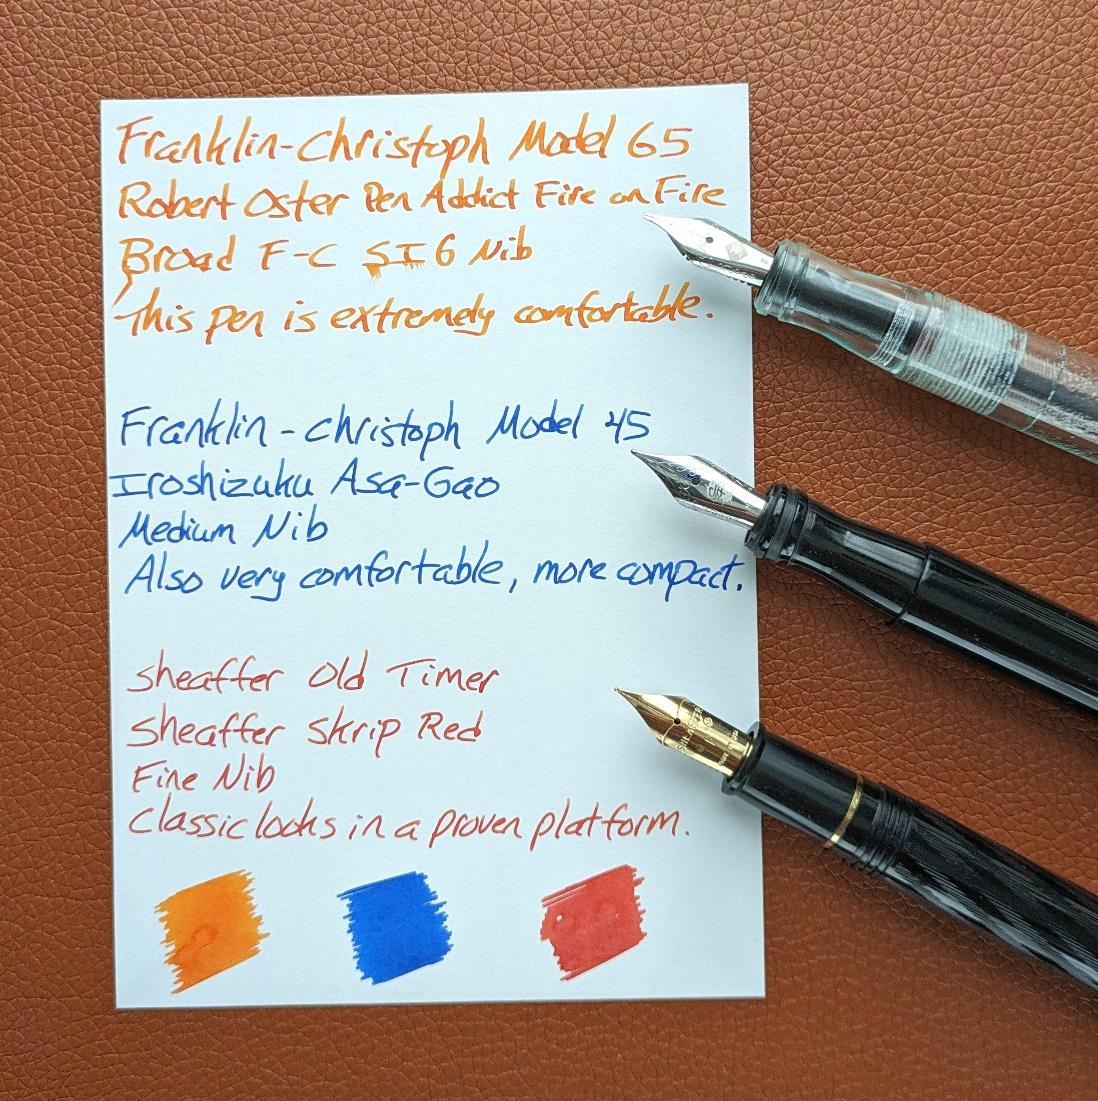 Franklin-Christoph Model 65
Robert Oster Pen Addict Fire on Fire
Broad F-C SIG Nib
This pen is extremely comfortable.
Franklin-Christoph Model 45
Iroshizuku Asa-Gao
Medium Nib
Also very comfortable, more compact.
Sheaffer Old Timer
Sheaffer Skrip Red
Fine Nib
Classic looks in a proven platform.
SHEAFFER